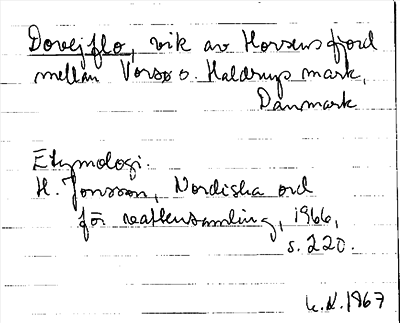 Dovejflo, vik av Horsens fjord
mellan Vorsø o. Haldrup mark,
Danmark
Etymologi:
H. Jonsson, Nordiska ord
för vattensamling, 1966,
s. 220.
u.N.1967